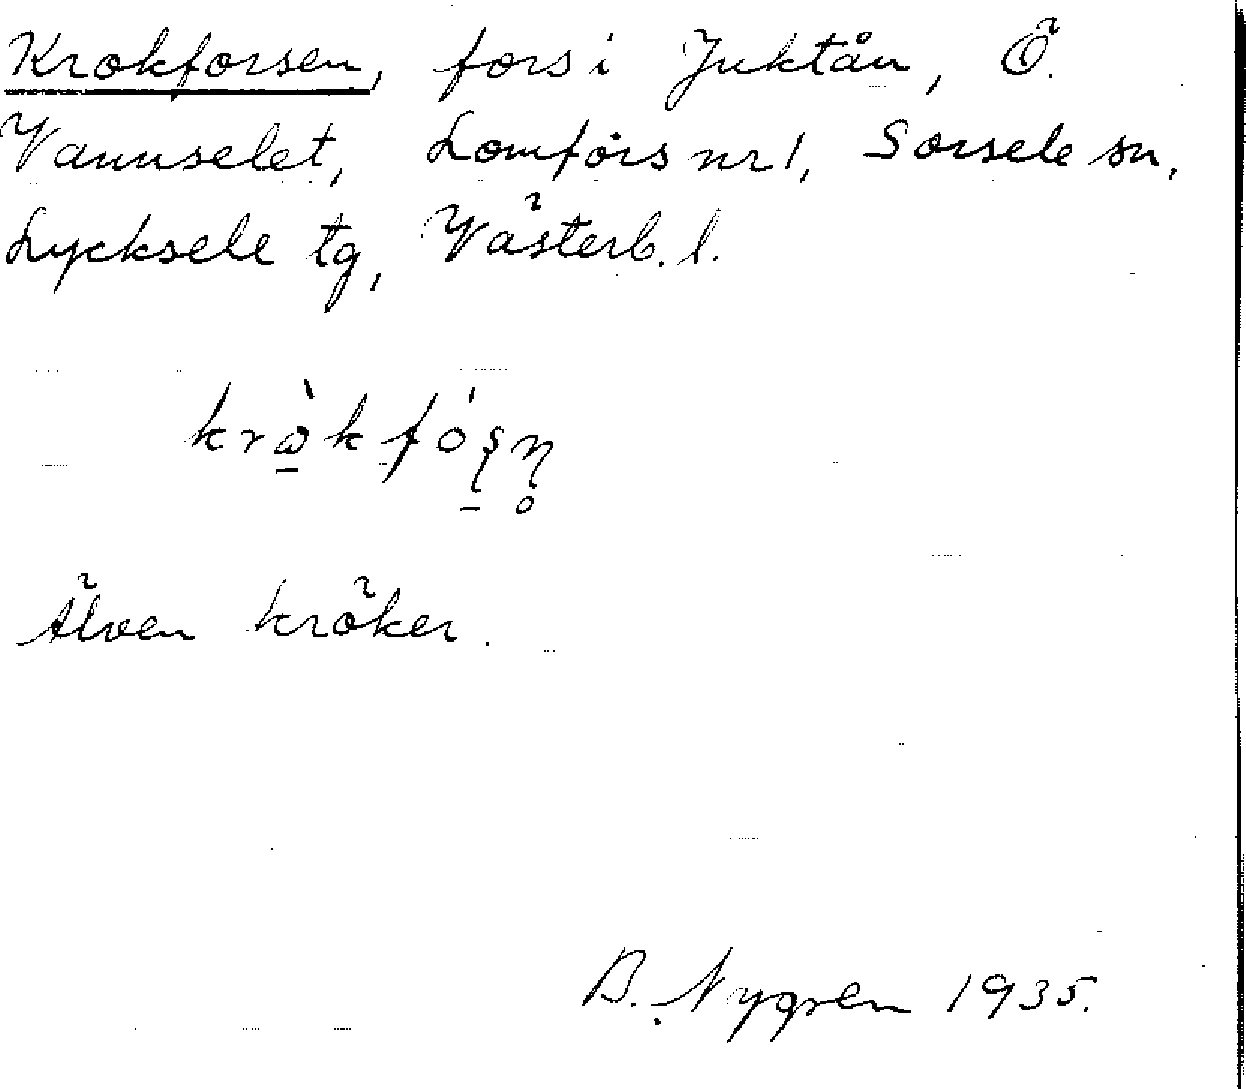 Krokforsen, fors i Juktån, Ö.
Vannselet, Lomfors nr 1, Sorsele sn,
Lycksele tg, Västerb. l.
krὼ̠kfó̠ʂɳ̥
Älven kröker.
B. Nygren 1935.